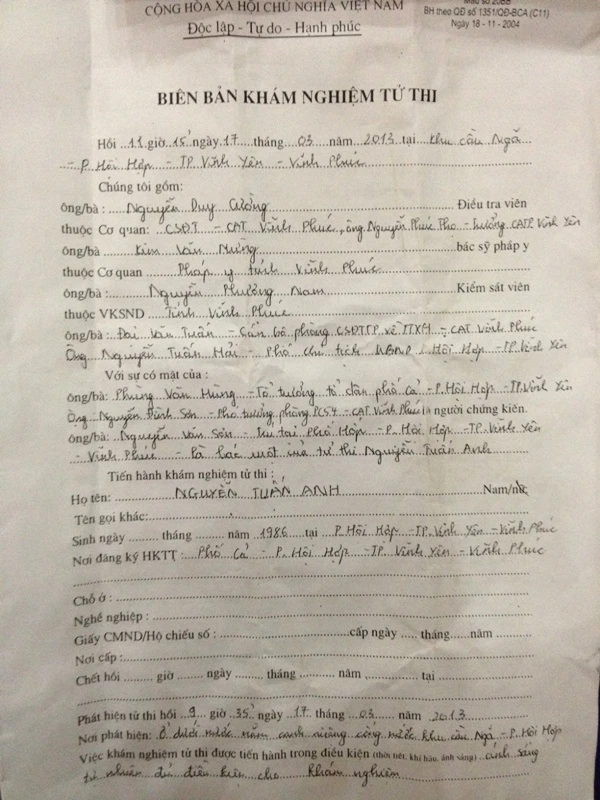 CỘNG HÒA XÃ HỘI CHỦ NGHĨA VIỆT NAM
Độc lập - Tự do - Hạnh phúc
Mẫu số 20BB
BH theo QĐ số 1351/QĐ-BCA (C11)
Ngày 18 - 11 - 2004
BIÊN BẢN KHÁM NGHIỆM TỬ THI
Hồi 11 giờ 15' ngày 17 tháng 03 năm 2013 tại Khu cầu Ngã
- P. Hội Hợp - TP Vĩnh Yên - Vĩnh Phúc
Chúng tôi gồm:
ông/bà : Nguyễn Duy Cường Điều tra viên
thuộc Cơ quan: CSĐT - CAT Vĩnh Phúc, ông Nguyễn Phúc Thọ - tướng CATP Vĩnh Yên
ông/bà Kim Văn bác sỹ pháp y
thuộc Cơ quan Pháp y tỉnh Vĩnh Phúc
ông/bà : Nguyễn Phương Nam Kiểm sát viên
thuộc VKSND Tỉnh Vĩnh Phúc
ông/bà : Đại Văn Tuấn - Cán bộ phòng CSĐTTP về TTXH - CAT Vĩnh Phúc
Ông Nguyễn Tuấn Hải - Phó chủ tịch UBND P. Hội Hợp - TP. Vĩnh Yên
Với sự có mặt của :
ông/bà: Phùng Văn Hùng - Tổ tưởng tổ dân phố cả - P. Hội Hợp - TP. Vĩnh Yên
Ông Nguyễn Đình Sơn - Phó tưởng phòng PC54 - CAT Vĩnh Phúc là người chứng kiến.
ông/bà: Nguyễn Văn Sơn - tại Phố Hợp - P. Hội Hợp - TP. Vĩnh Yên
- Vĩnh Phúc - Là bác ruột của tử thi Nguyễn Tuấn Anh
Tiến hành khám nghiệm tử thi :
Họ tên: NGUYỄN TUẤN ANH Nam/nữ
Tên gọi khác:
Sinh ngày tháng năm 1986 tại P. Hội Hợp - TP. Vĩnh Yên - Vĩnh Phúc
Nơi đăng ký HKTT : Phố Cả - P. Hội Hợp - TP Vĩnh Yên - Vĩnh Phúc
Chỗ ở :
Nghề nghiệp :
Giấy CMND/Hộ chiếu số : cấp ngày tháng năm
Nơi cấp :
Chết hồi giờ ngày tháng năm , tại
Phát hiện tử thi hồi 9 giờ 35' ngày 17 tháng 03 năm 2013
Nơi phát hiện: Ở dưới nước nằm cạnh cống nước khu cầu Ngã - P. Hội Hợp
Việc khám nghiệm tử thi được tiến hành trong điều kiện (thời tiết, khí hậu, ánh sáng) ánh sáng
tự nhiên đủ điều kiện cho khám nghiệm